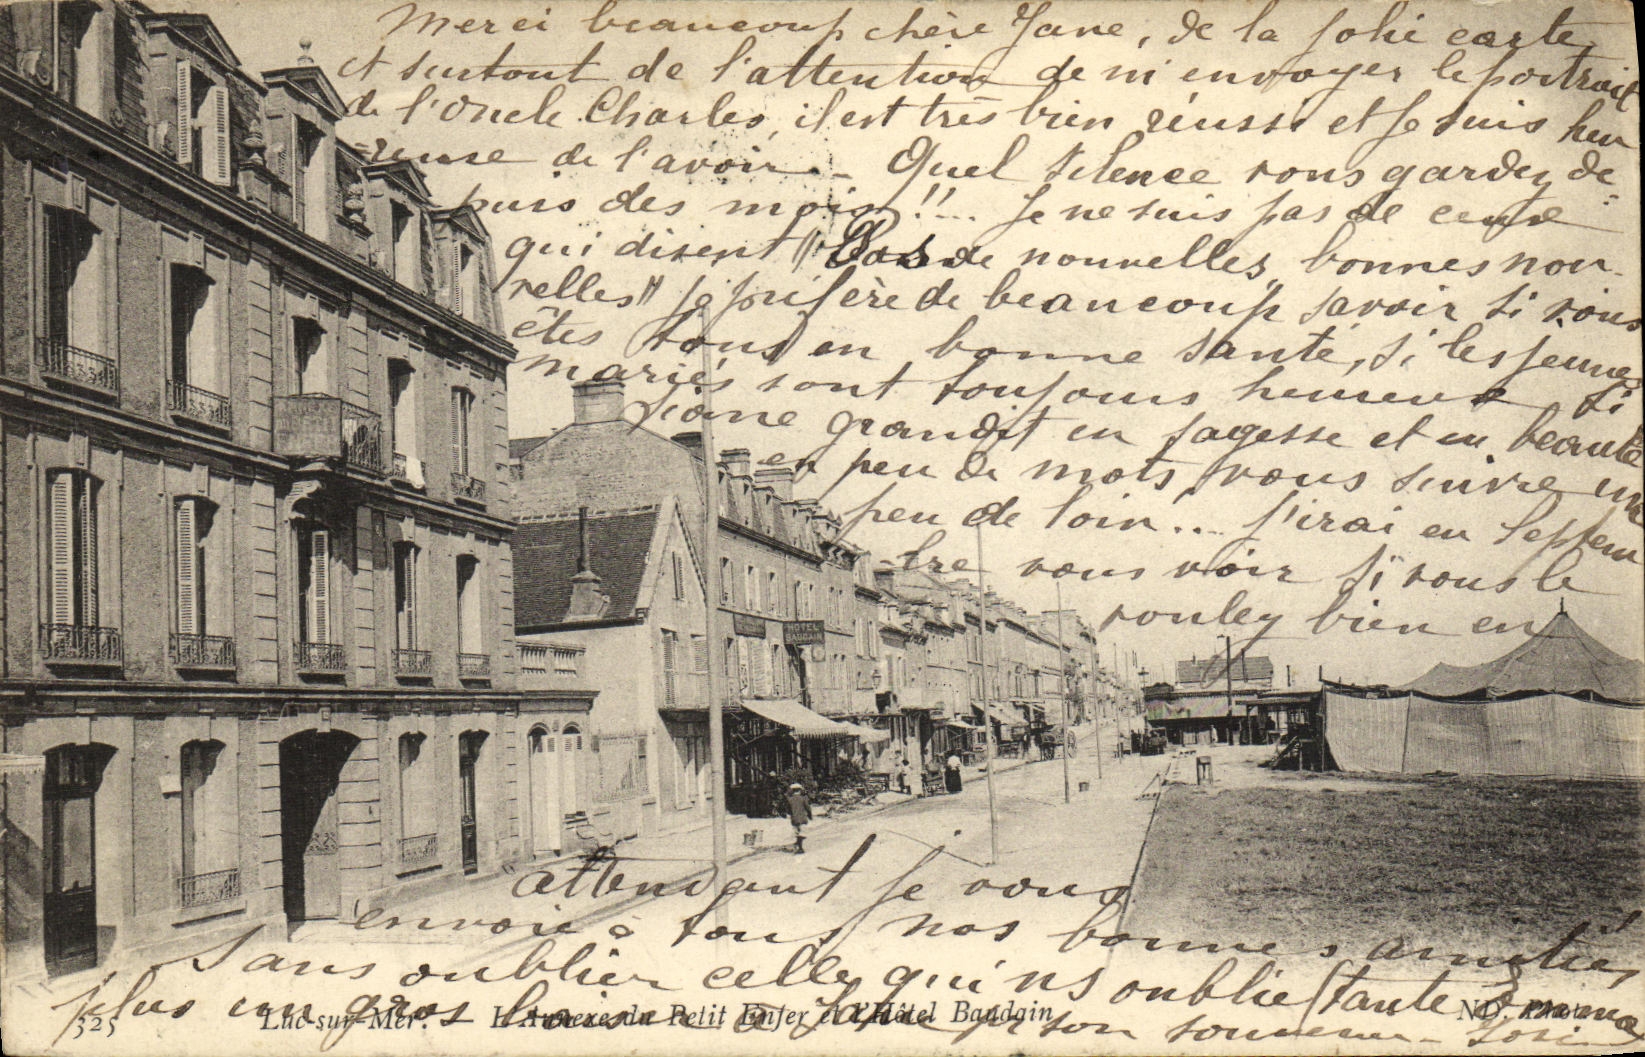 Merci beaucoup chère Jane, de la jolie carte
et surtout de l'attention de m'envoyer le portrait
de l'Oncle Charles, il est très bien réussi et je suis heu
=reuse de l'avoir. _ Quel silence vous gardez de
puis des mois!!... Je ne suis pas de ceux
qui disent "Pas de nouvelles, bonnes nou-
velles" je préfère de beaucoup savoir si vous
êtes tous en bonne santé, si les jeunes
mariés sont toujours heureux si
grandit en sagesse et en beauté
en peu de mots, vous suivre un
peu de loin... J'irai en Septem
=bre vous voir si vous le
voulez bien en
HOTEL
BAUDAIN
attendant je vous
envoie à tous nos bonnes amitiés
Sans oublier celle qui ns oublie (tante Emma)
plus un gros baiser à Jane et son
325 Luc-sur-Mer. - L'Annexe du Petit Enfer et l'Hôtel Baudain ND. Phot.